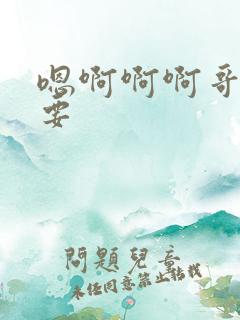 嗯啊啊啊哥
要
問題兒童
未经同意禁止转载